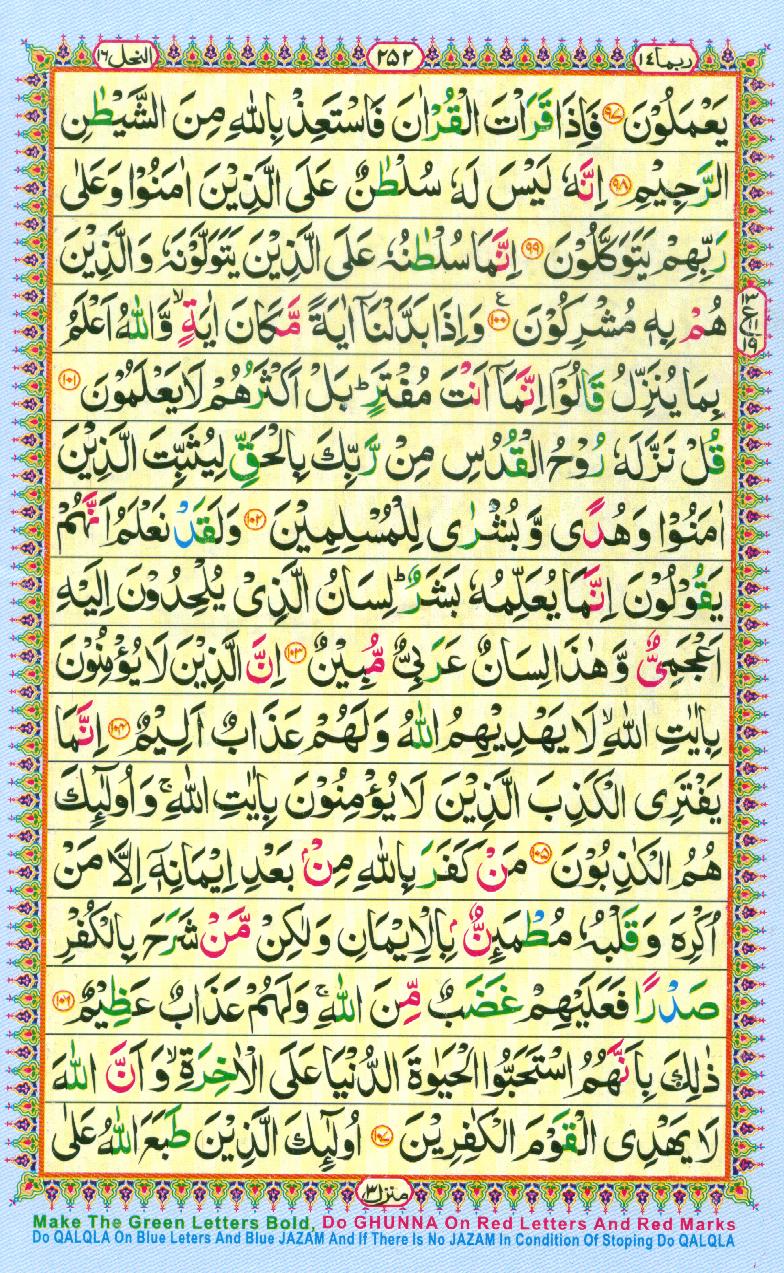 ربما ١٤
٢٥٢
النحل ١٦
يَعْمَلُوْنَ ﴿٩٧﴾ فَاِذَا قَرَاْتَ الْقُرْاٰنَ فَاسْتَعِذْ بِاللّٰهِ مِنَ الشَّيْطٰنِ
الرَّجِيْمِ ﴿٩٨﴾ اِنَّهٗ لَيْسَ لَهٗ سُلْطٰنٌ عَلَى الَّذِيْنَ اٰمَنُوْا وَعَلٰى
رَبِّهِمْ يَتَوَكَّلُوْنَ ﴿٩٩﴾ اِنَّمَا سُلْطٰنُهٗ عَلَى الَّذِيْنَ يَتَوَلَّوْنَهٗ وَالَّذِيْنَ
هُمْ بِهٖ مُشْرِكُوْنَ ﴿١٠٠﴾ۧ وَاِذَا بَدَّلْنَاۤ اٰيَةً مَّكَانَ اٰيَةٍ ۙ وَّاللّٰهُ اَعْلَمُ
بِمَا يُنَزِّلُ قَالُوْۤا اِنَّمَاۤ اَنْتَ مُفْتَرٍ ؕ بَلْ اَكْثَرُهُمْ لَا يَعْلَمُوْنَ ﴿١٠١﴾
قُلْ نَزَّلَهٗ رُوْحُ الْقُدُسِ مِنْ رَّبِّكَ بِالْحَقِّ لِيُثَبِّتَ الَّذِيْنَ
اٰمَنُوْا وَهُدًى وَّ بُشْرٰى لِلْمُسْلِمِيْنَ ﴿١٠٢﴾ وَلَقَدْ نَعْلَمُ اَنَّهُمْ
يَقُوْلُوْنَ اِنَّمَا يُعَلِّمُهٗ بَشَرٌ ؕ لِسَانُ الَّذِيْ يُلْحِدُوْنَ اِلَيْهِ
اَعْجَمِيٌّ وَّ هٰذَا لِسَانٌ عَرَبِيٌّ مُّبِيْنٌ ﴿١٠٣﴾ اِنَّ الَّذِيْنَ لَا يُؤْمِنُوْنَ
بِاٰيٰتِ اللّٰهِ ۙ لَا يَهْدِيْهِمُ اللّٰهُ وَلَهُمْ عَذَابٌ اَلِيْمٌ ﴿١٠٤﴾ اِنَّمَا
يَفْتَرِى الْكَذِبَ الَّذِيْنَ لَا يُؤْمِنُوْنَ بِاٰيٰتِ اللّٰهِ ۚ وَاُولٰٓئِكَ
هُمُ الْكٰذِبُوْنَ ﴿١٠٥﴾ مَنْ كَفَرَ بِاللّٰهِ مِنْۢ بَعْدِ اِيْمَانِهٖۤ اِلَّا مَنْ
اُكْرِهَ وَقَلْبُهٗ مُطْمَئِنٌّۢ بِالْاِيْمَانِ وَلٰكِنْ مَّنْ شَرَحَ بِالْكُفْرِ
صَدْرًا فَعَلَيْهِمْ غَضَبٌ مِّنَ اللّٰهِ ۚ وَلَهُمْ عَذَابٌ عَظِيْمٌ ﴿١٠٦﴾
ذٰلِكَ بِاَنَّهُمُ اسْتَحَبُّوا الْحَيٰوةَ الدُّنْيَا عَلَى الْاٰخِرَةِ ۙ وَاَنَّ اللّٰهَ
لَا يَهْدِى الْقَوْمَ الْكٰفِرِيْنَ ﴿١٠٧﴾ اُولٰٓئِكَ الَّذِيْنَ طَبَعَ اللّٰهُ عَلٰى
منزل ٣
Make The Green Letters Bold, Do GHUNNA On Red Letters And Red Marks
Do QALQLA On Blue Leters And Blue JAZAM And If There Is No JAZAM In Condition Of Stoping Do QALQLA